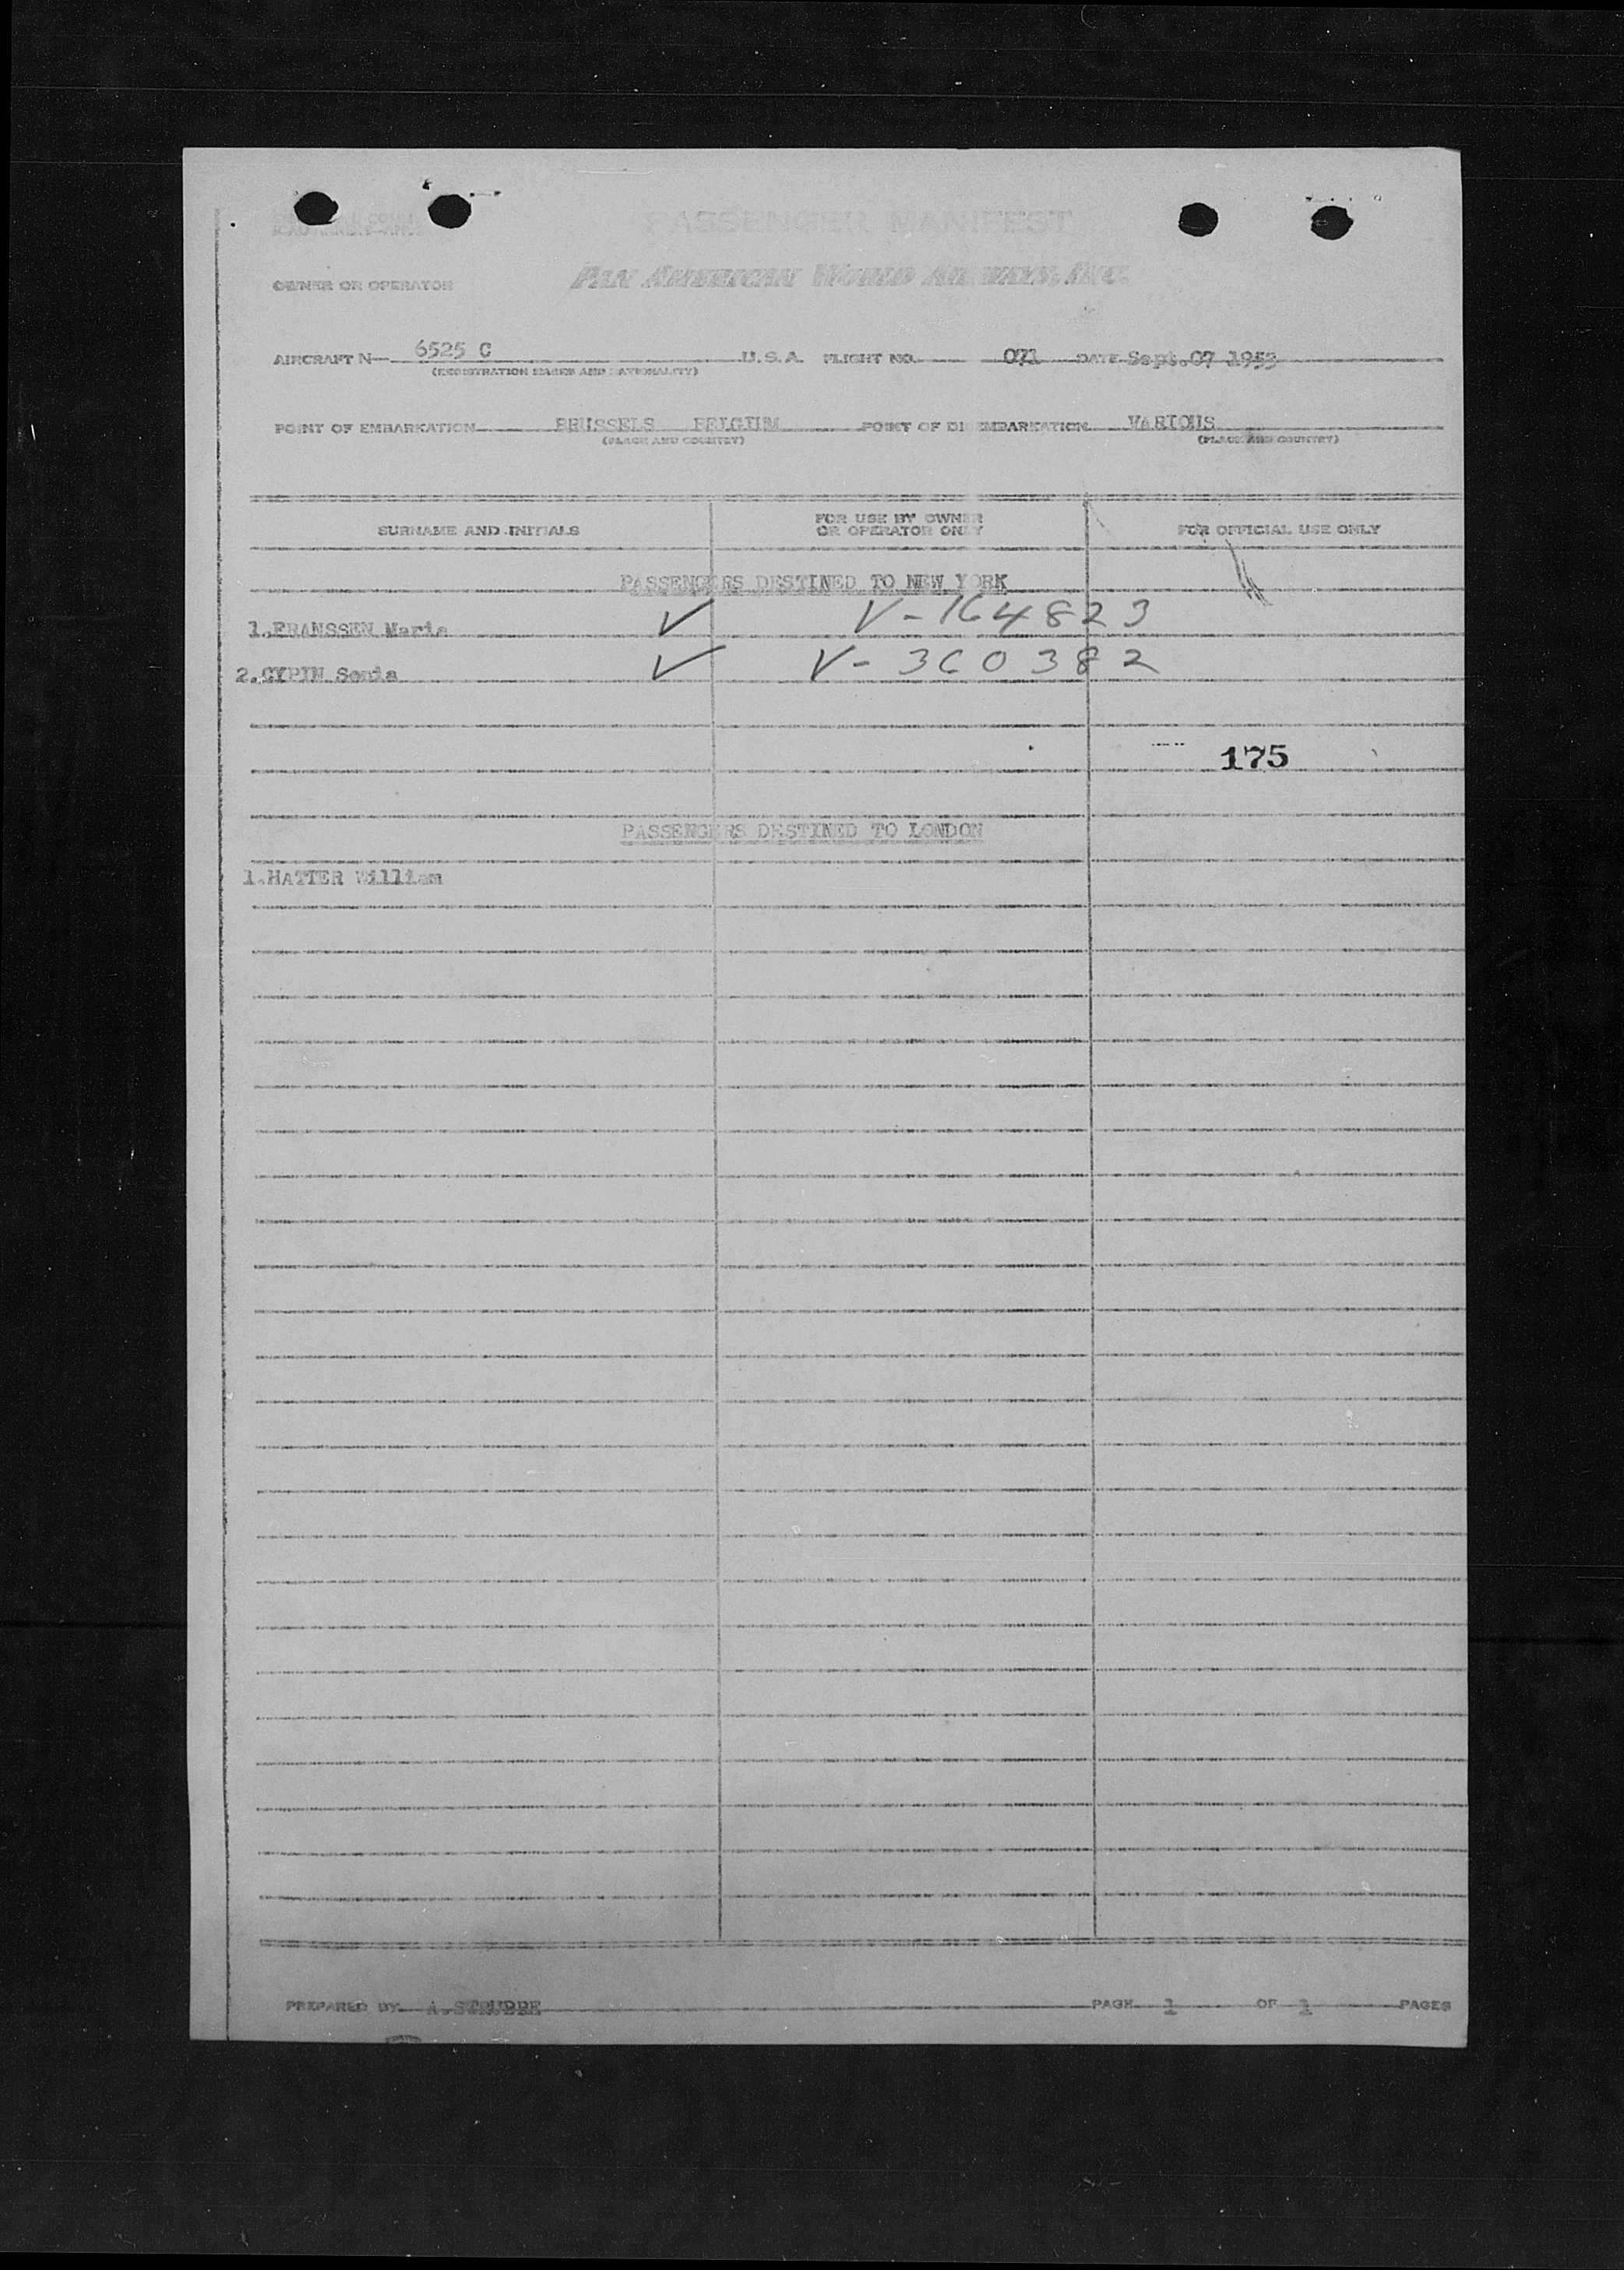 PASSENGER MANIFEST
OWNER OR OPERATOR PAN AMERICAN WORLD AIRWAYS, INC.
AIRCRAFT N 6525 C U.S.A. FLIGHT NO. 071 DATE Sept.07 1953
(REGISTRATION MARKS AND NATIONALITY)
POINT OF EMBARKATION BRUSSELS BELGIUM POINT OF DISEMBARKATION VARIOUS
(PLACE AND COUNTRY) (PLACE AND COUNTRY)
SURNAME AND INITIALS FOR USE BY OWNER OR OPERATOR ONLY FOR OFFICIAL USE ONLY
PASSENGERS DESTINED TO NEW YORK
1.FRANSSEN Maria V-164823
2.CYPIN Sonia V-360382
175
PASSENGERS DESTINED TO LONDON
1.HATTER William
PREPARED BY A.STRUBBE PAGE 1 OF 1 PAGES